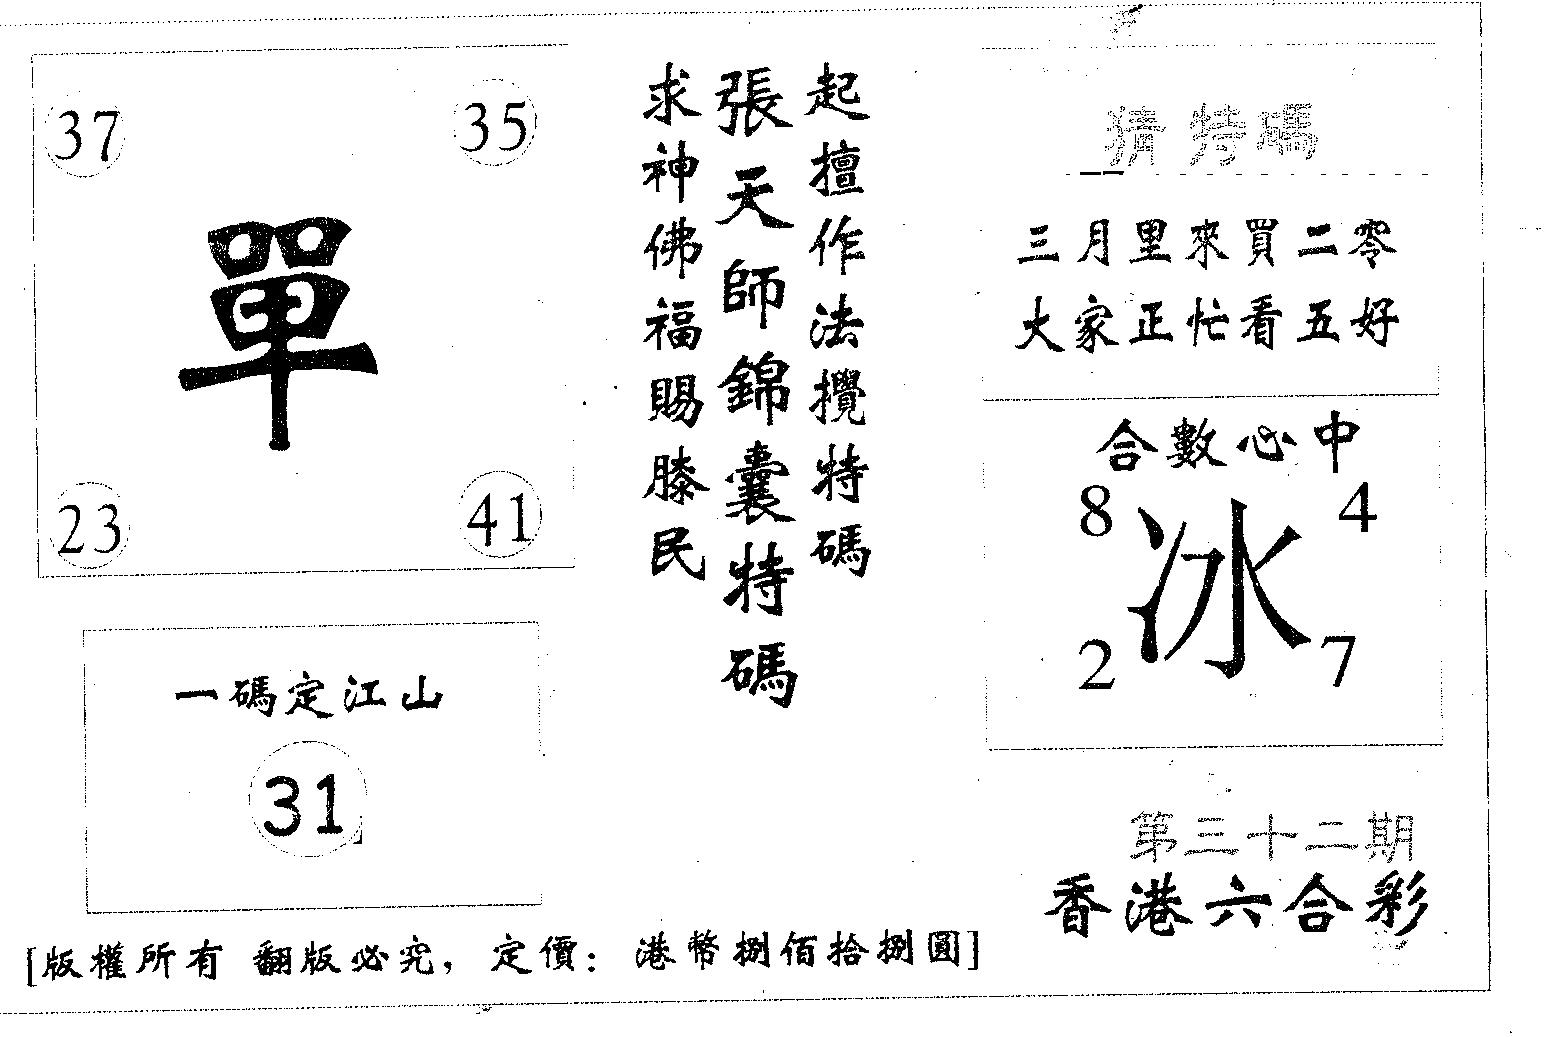 37 35
單
23 41
一碼定江山
31
起擅作法攪特碼
張天師錦囊特碼
求神佛福賜膝民
猜特碼
三月里來買二零
大家正忙看五好
合數心中
8 4
冰
2 7
第三十二期
香港六合彩
[版權所有 翻版必究，定價：港幣捌佰拾捌圓]